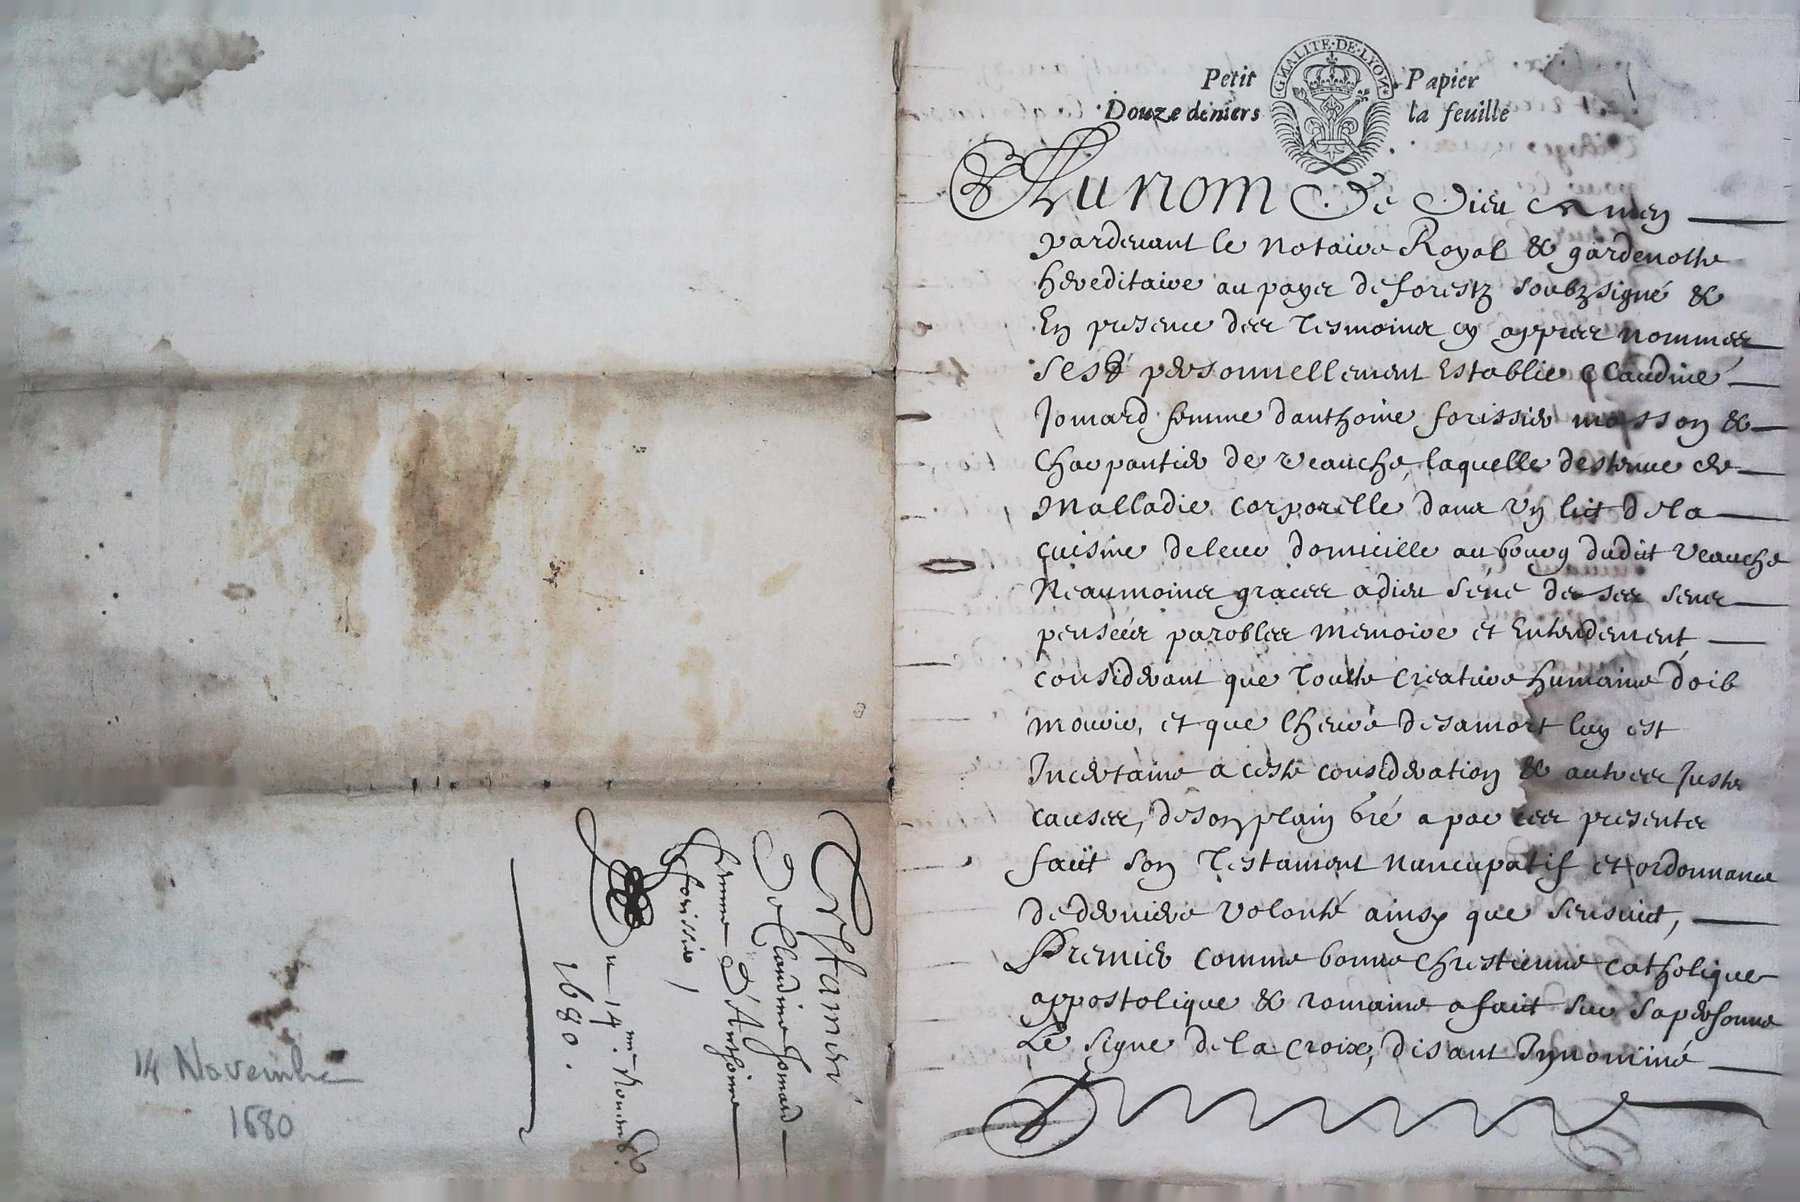 Testament
De Claudine Jomard
femme d'Anthoine
forissier
Du 14me. Novemb.
1680.
14 Novembre
1680
GNALITE·DE·LYON
Petit Papier
Douze deniers la feuille
Au nom De Dieu Amen
pardevant le Notaire Royal & gardenotte
hereditaire au payes de forestz soubzsigné &
En presence des Tesmoins cy appres nommes
s'est personnellement Establie Claudine
Jomard femme d'anthoine forissier masson &
Charpantier de veauche, laquelle destenue de
Malladie corporelle dans vn lict de la
cuisine de leur domicille au bourg dudict veauche
Neanmoins graces a dieu séne de ses sens
penséés parolles memoire et Entendement
considerant que Toutte creature humaine doib
mourir, et que lheure de sa mort luy est
Incertaine a ceste consideration & autres Juste
causes, de son plain gré a par ces presentes
faict son Testament nuncupatif et ordonnance
de derniere volonté ainsy que sensuict,
Premier comme bonne chrestienne catholique
appostolique & romaine a faict sur sa personne
Le signe de la Croix, disant In nominé